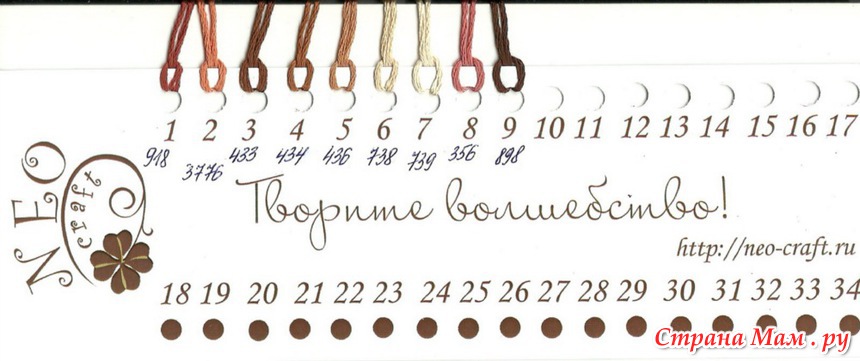 1 2 3 4 5 6 7 8 9 10 11 12 13 14 15 16 17
918 3776 433 434 436 738 739 356 898
NEO
craft
Творите волшебство!
http://neo-craft.ru
18 19 20 21 22 23 24 25 26 27 28 29 30 31 32 33 34
Страна Мам.ру